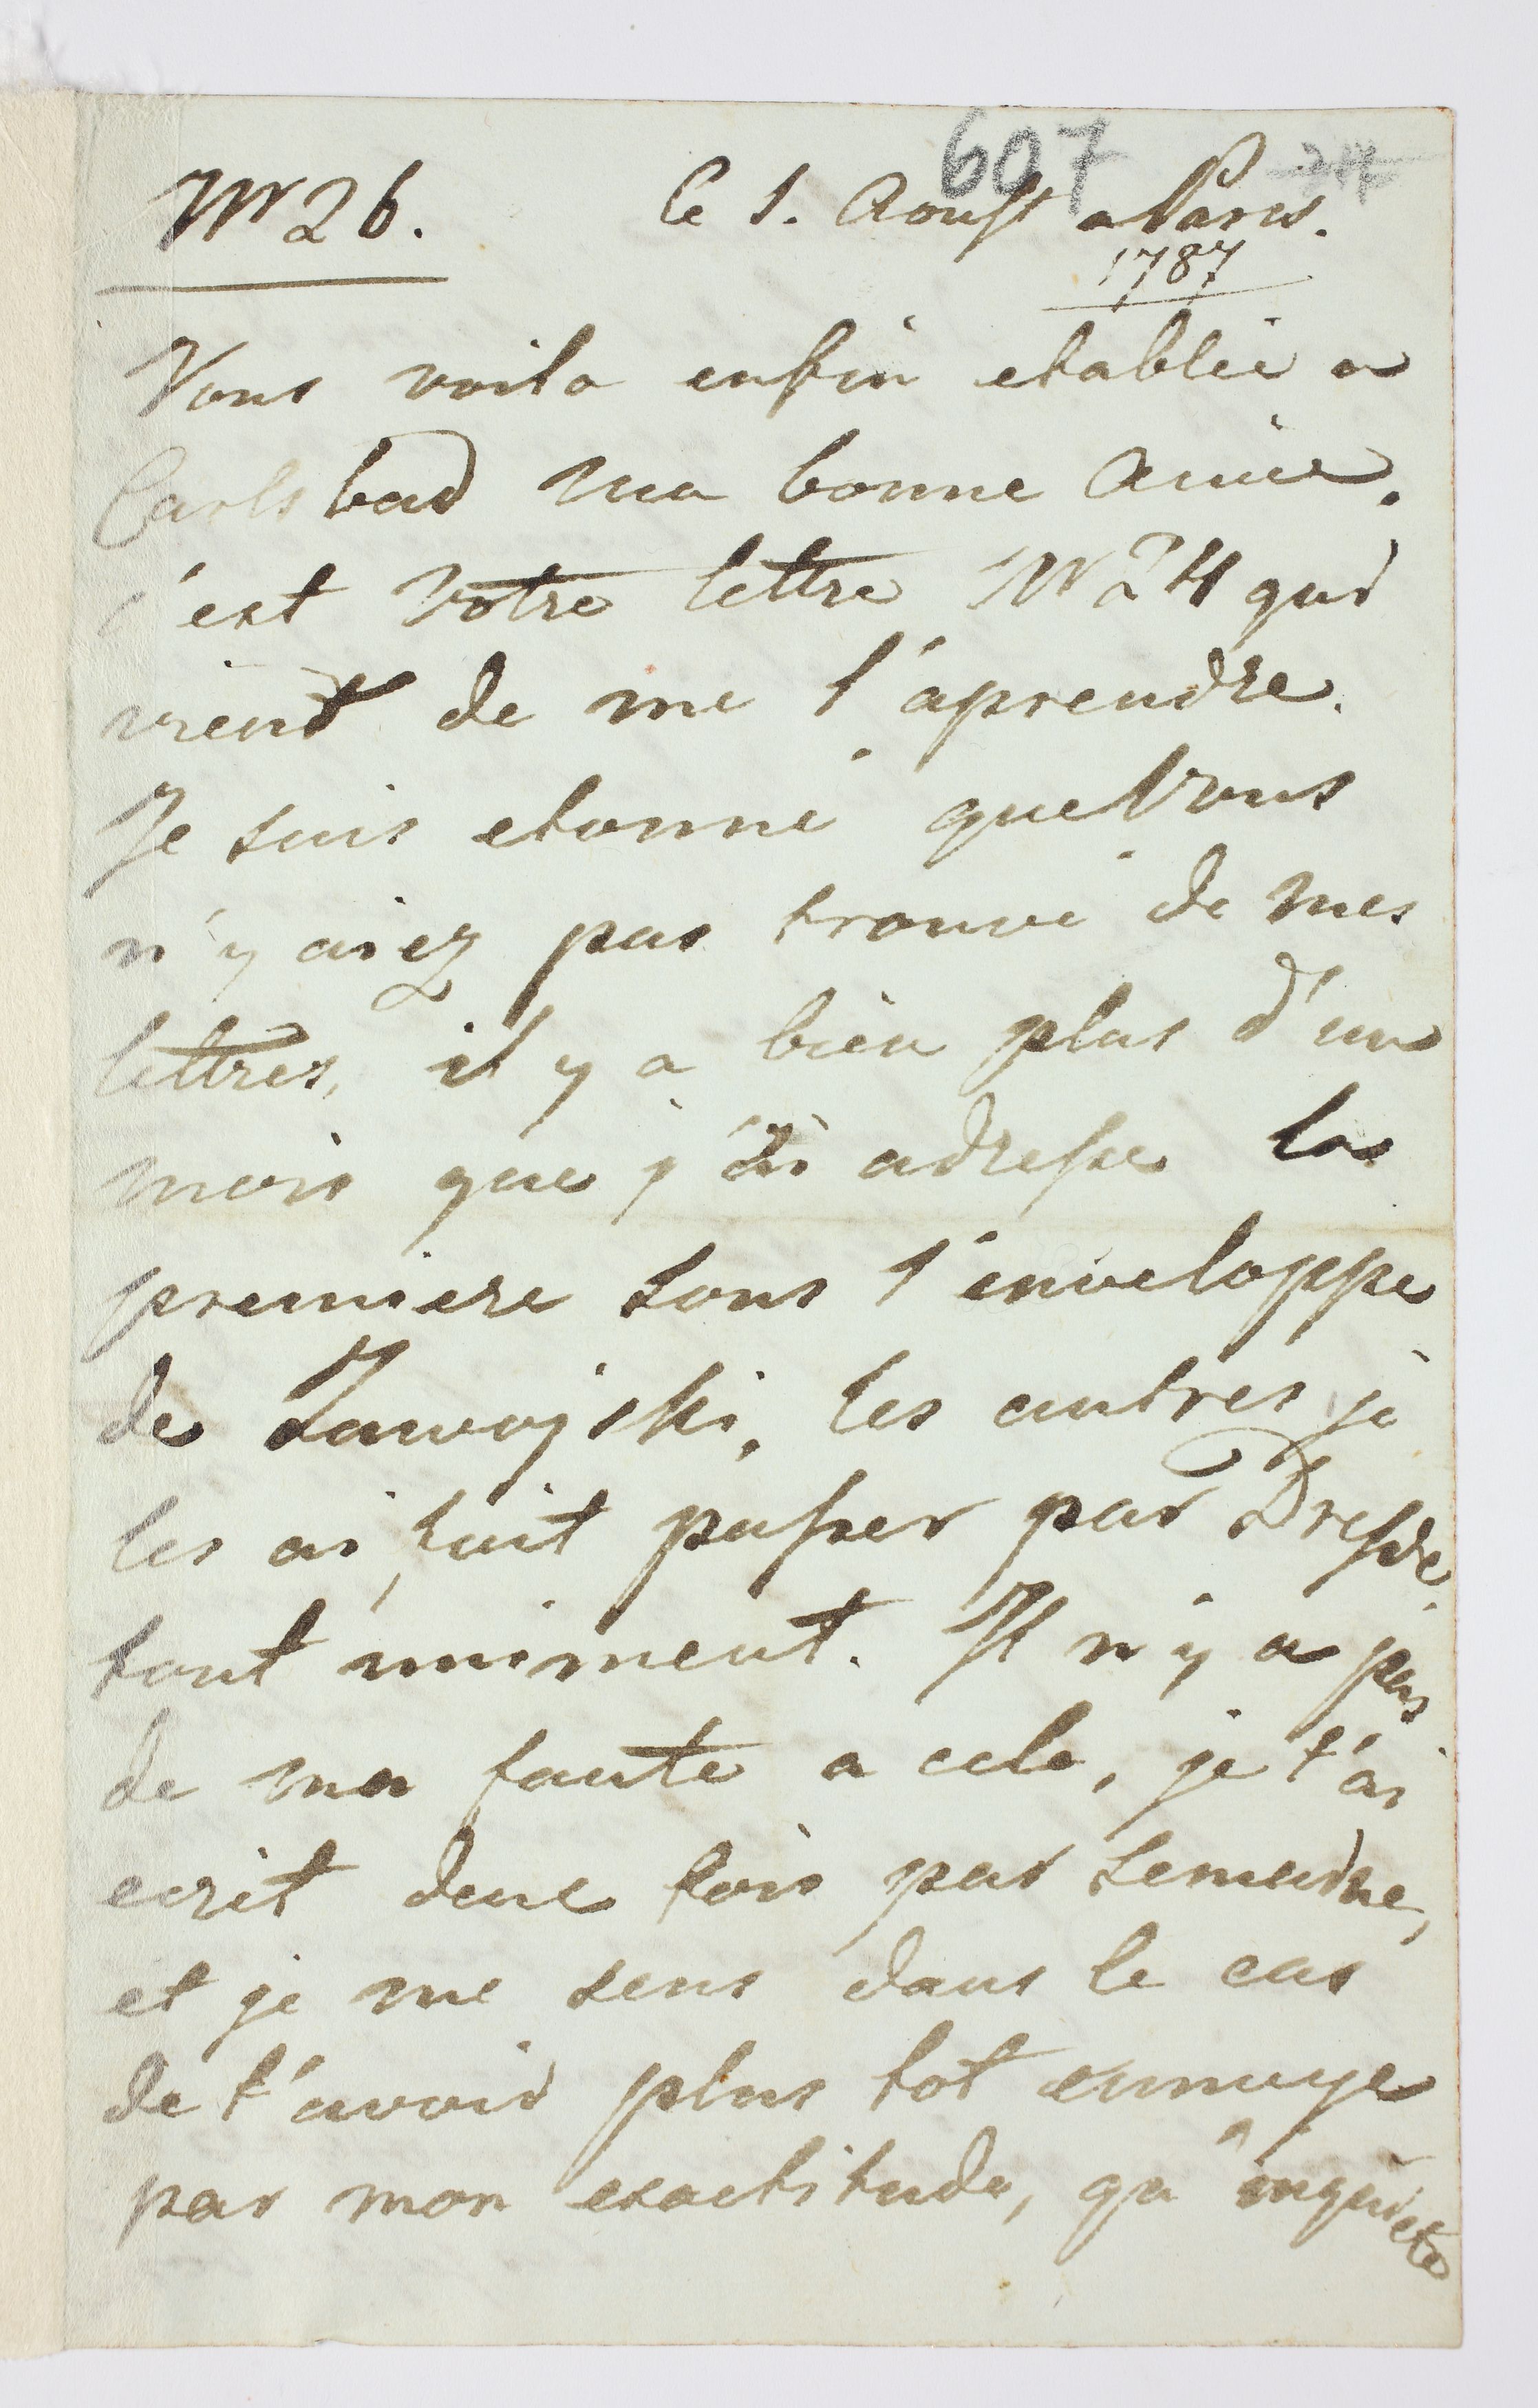 607
Nr 26. le 1. Aoust a Paris.
1787
Vous voila enfin etablie a
Carlsbad ma bonne Amie,
c'est votre lettre Nr 24 qui
vient de me l'aprendre.
Je suis etonné que Vous
n'y aiez pas trouvé de mes
lettres, il y a bien plus d'un
mois que j'ai adressé la
premiere sous l'enveloppe
de Zawojski, les autres je
les ai fait passer par Dresde
tout uniment. Il n'y a pas
de ma faute a cela, je t'ai
ecrit deux fois par semaine,
et je me sens dans le cas
de t'avoir plus tot ennuye
par mon exactitude, qu'inquieté